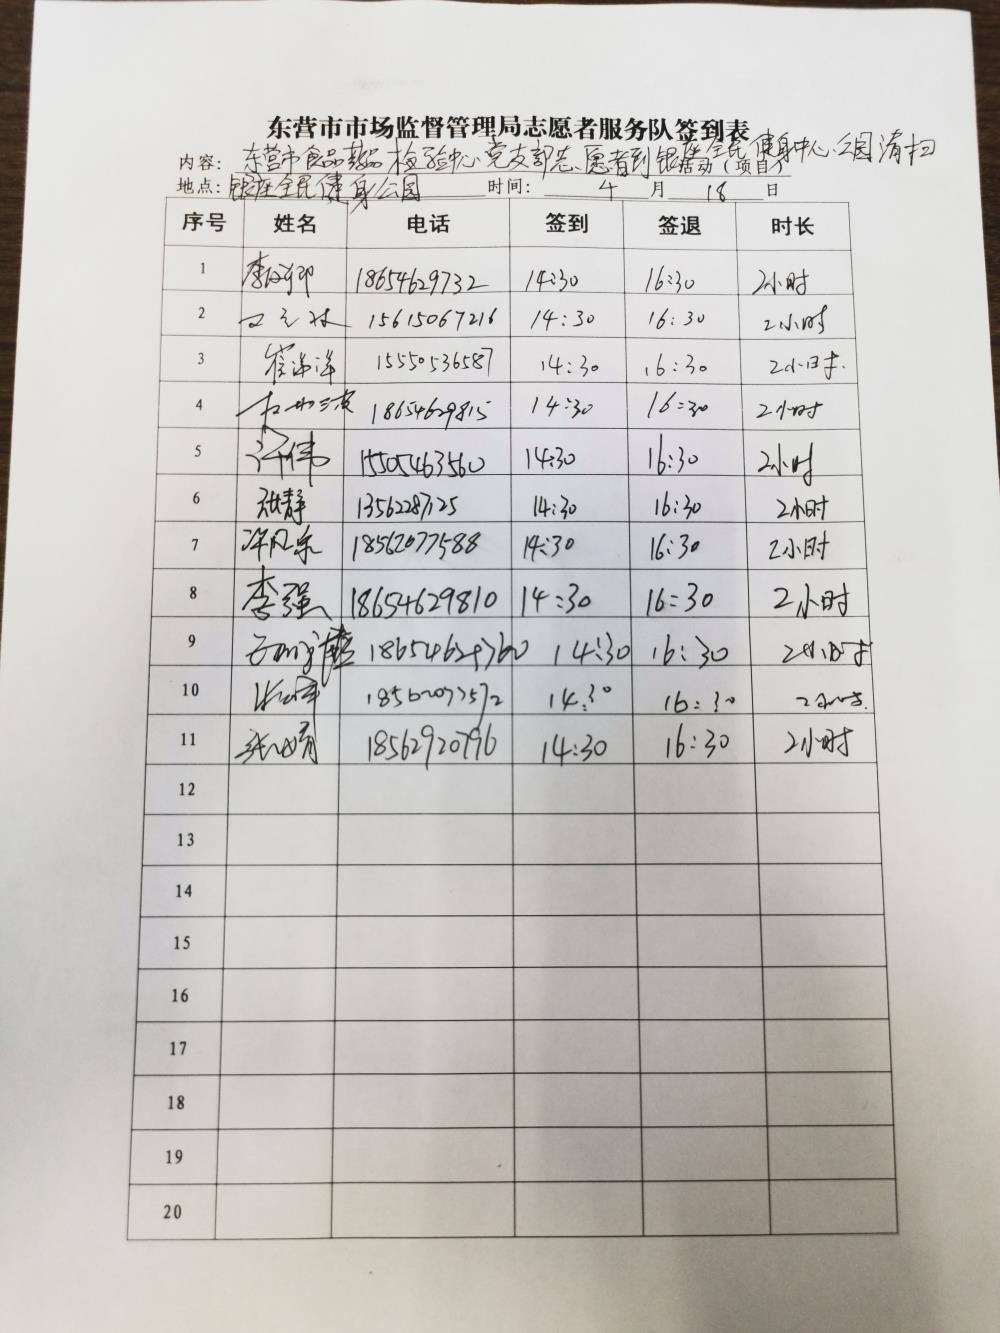 东营市市场监督管理局志愿者服务队签到表
内容：东营市食品药品检验中心党支部志愿者到银座全民健身中心公园清扫活动（项目）
地点：银座全民健身公园 时间：4月18日
序号 姓名 电话 签到 签退 时长
1 18654629732 14:30 16:30 2小时
2 15615067216 14:30 16:30 2小时
3 崔海洋 15550536587 14:30 16:30 2小时.
4 18654629815 14:30 16:30 2小时
5 许伟 15505463560 14:30 16:30 2小时
6 张静 14:30 16:30 2小时
7 18562077588 14:30 16:30 2小时
8 李强 18654629810 14:30 16:30 2小时
9 14:30 16:30 2小时
10 14:30 16:30 2小时.
11 18562920796 14:30 16:30 2小时
12
13
14
15
16
17
18
19
20